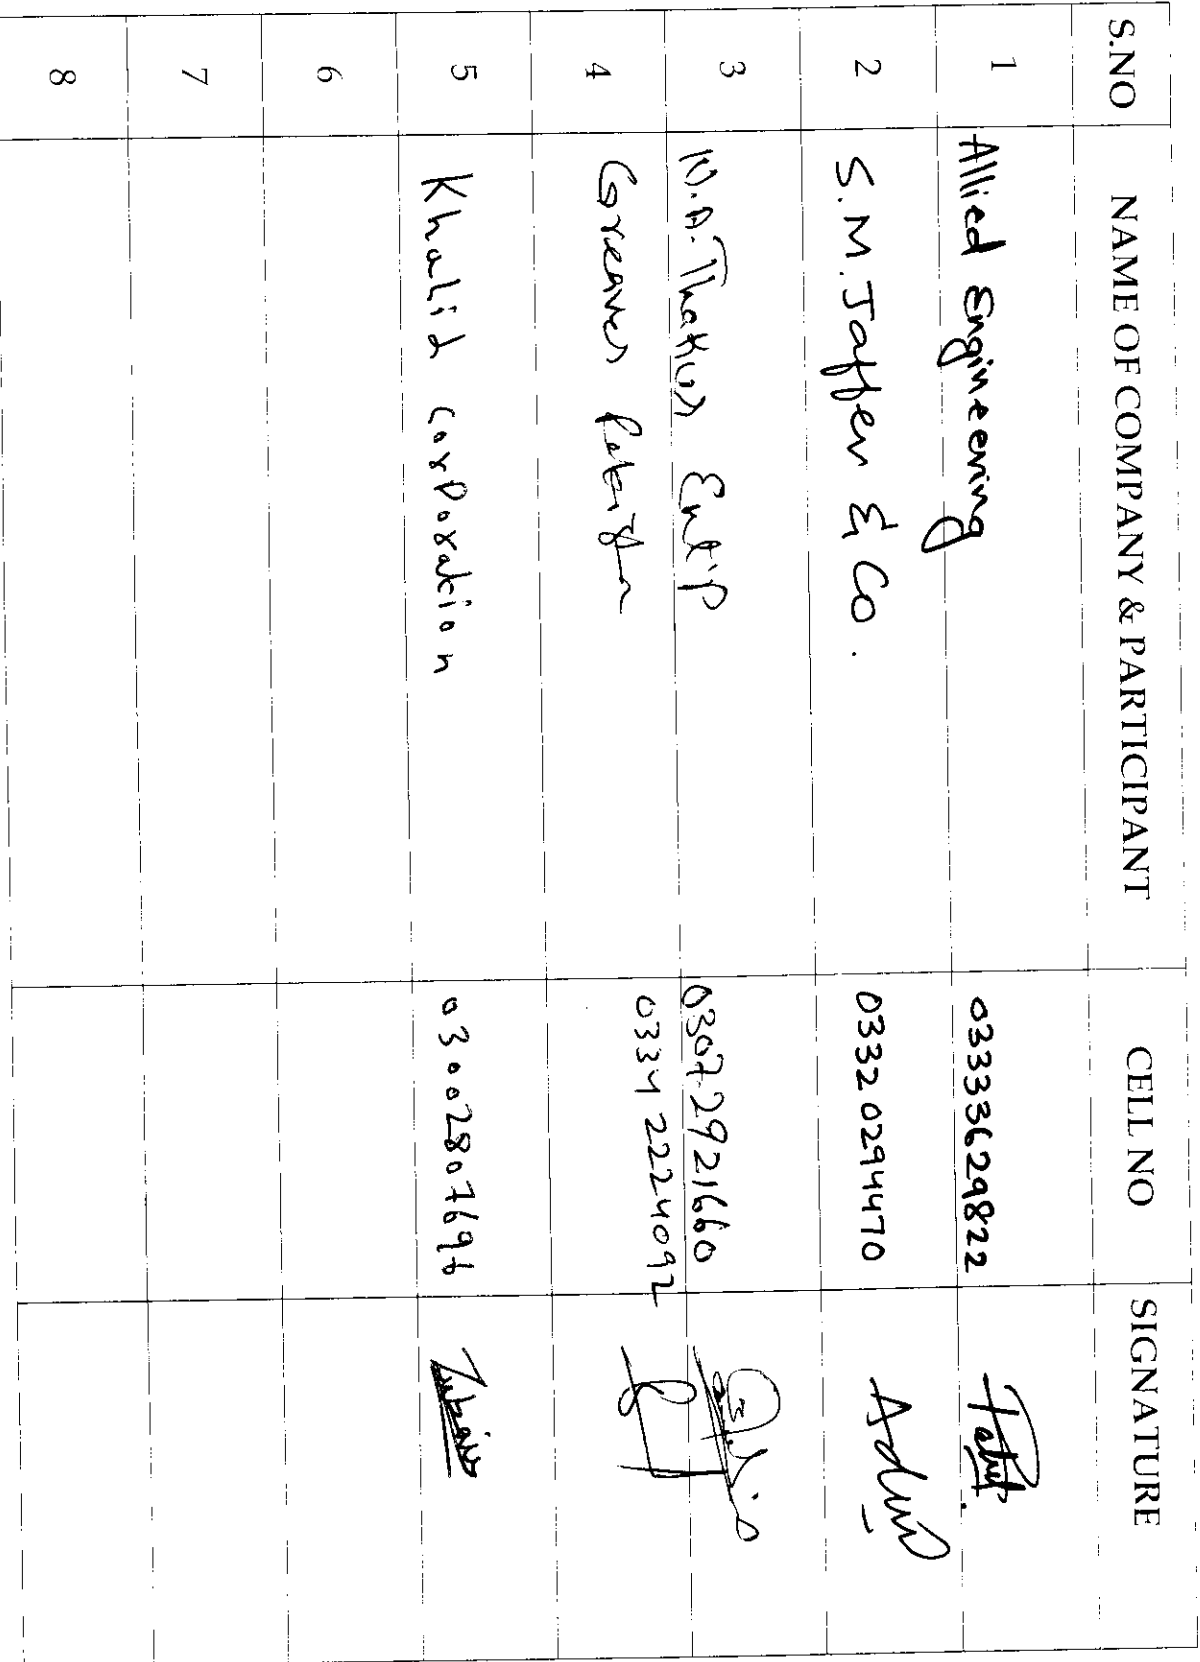 S.NO NAME OF COMPANY & PARTICIPANT CELL NO SIGNATURE
1 Allied Engineering 03333629822
2 S.M. Jaffer & Co. 03320294470
3 Ent'p 0307-2921660
4 Greaves 0334 2224092
5 Khalid corporation 03002807696 Zubair
6
7
8